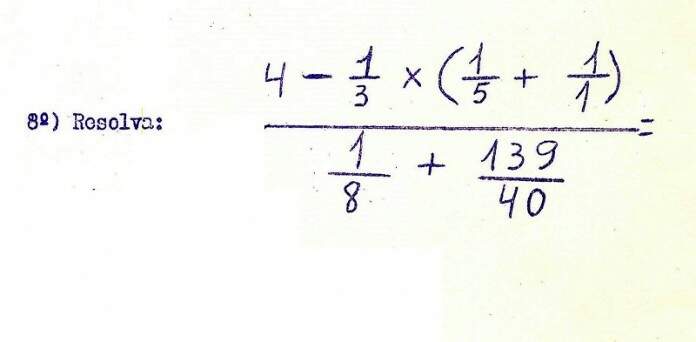 8º) Resolva:
4 - 1/3 x (1/5 + 1/1)
=
1/8 + 139/40